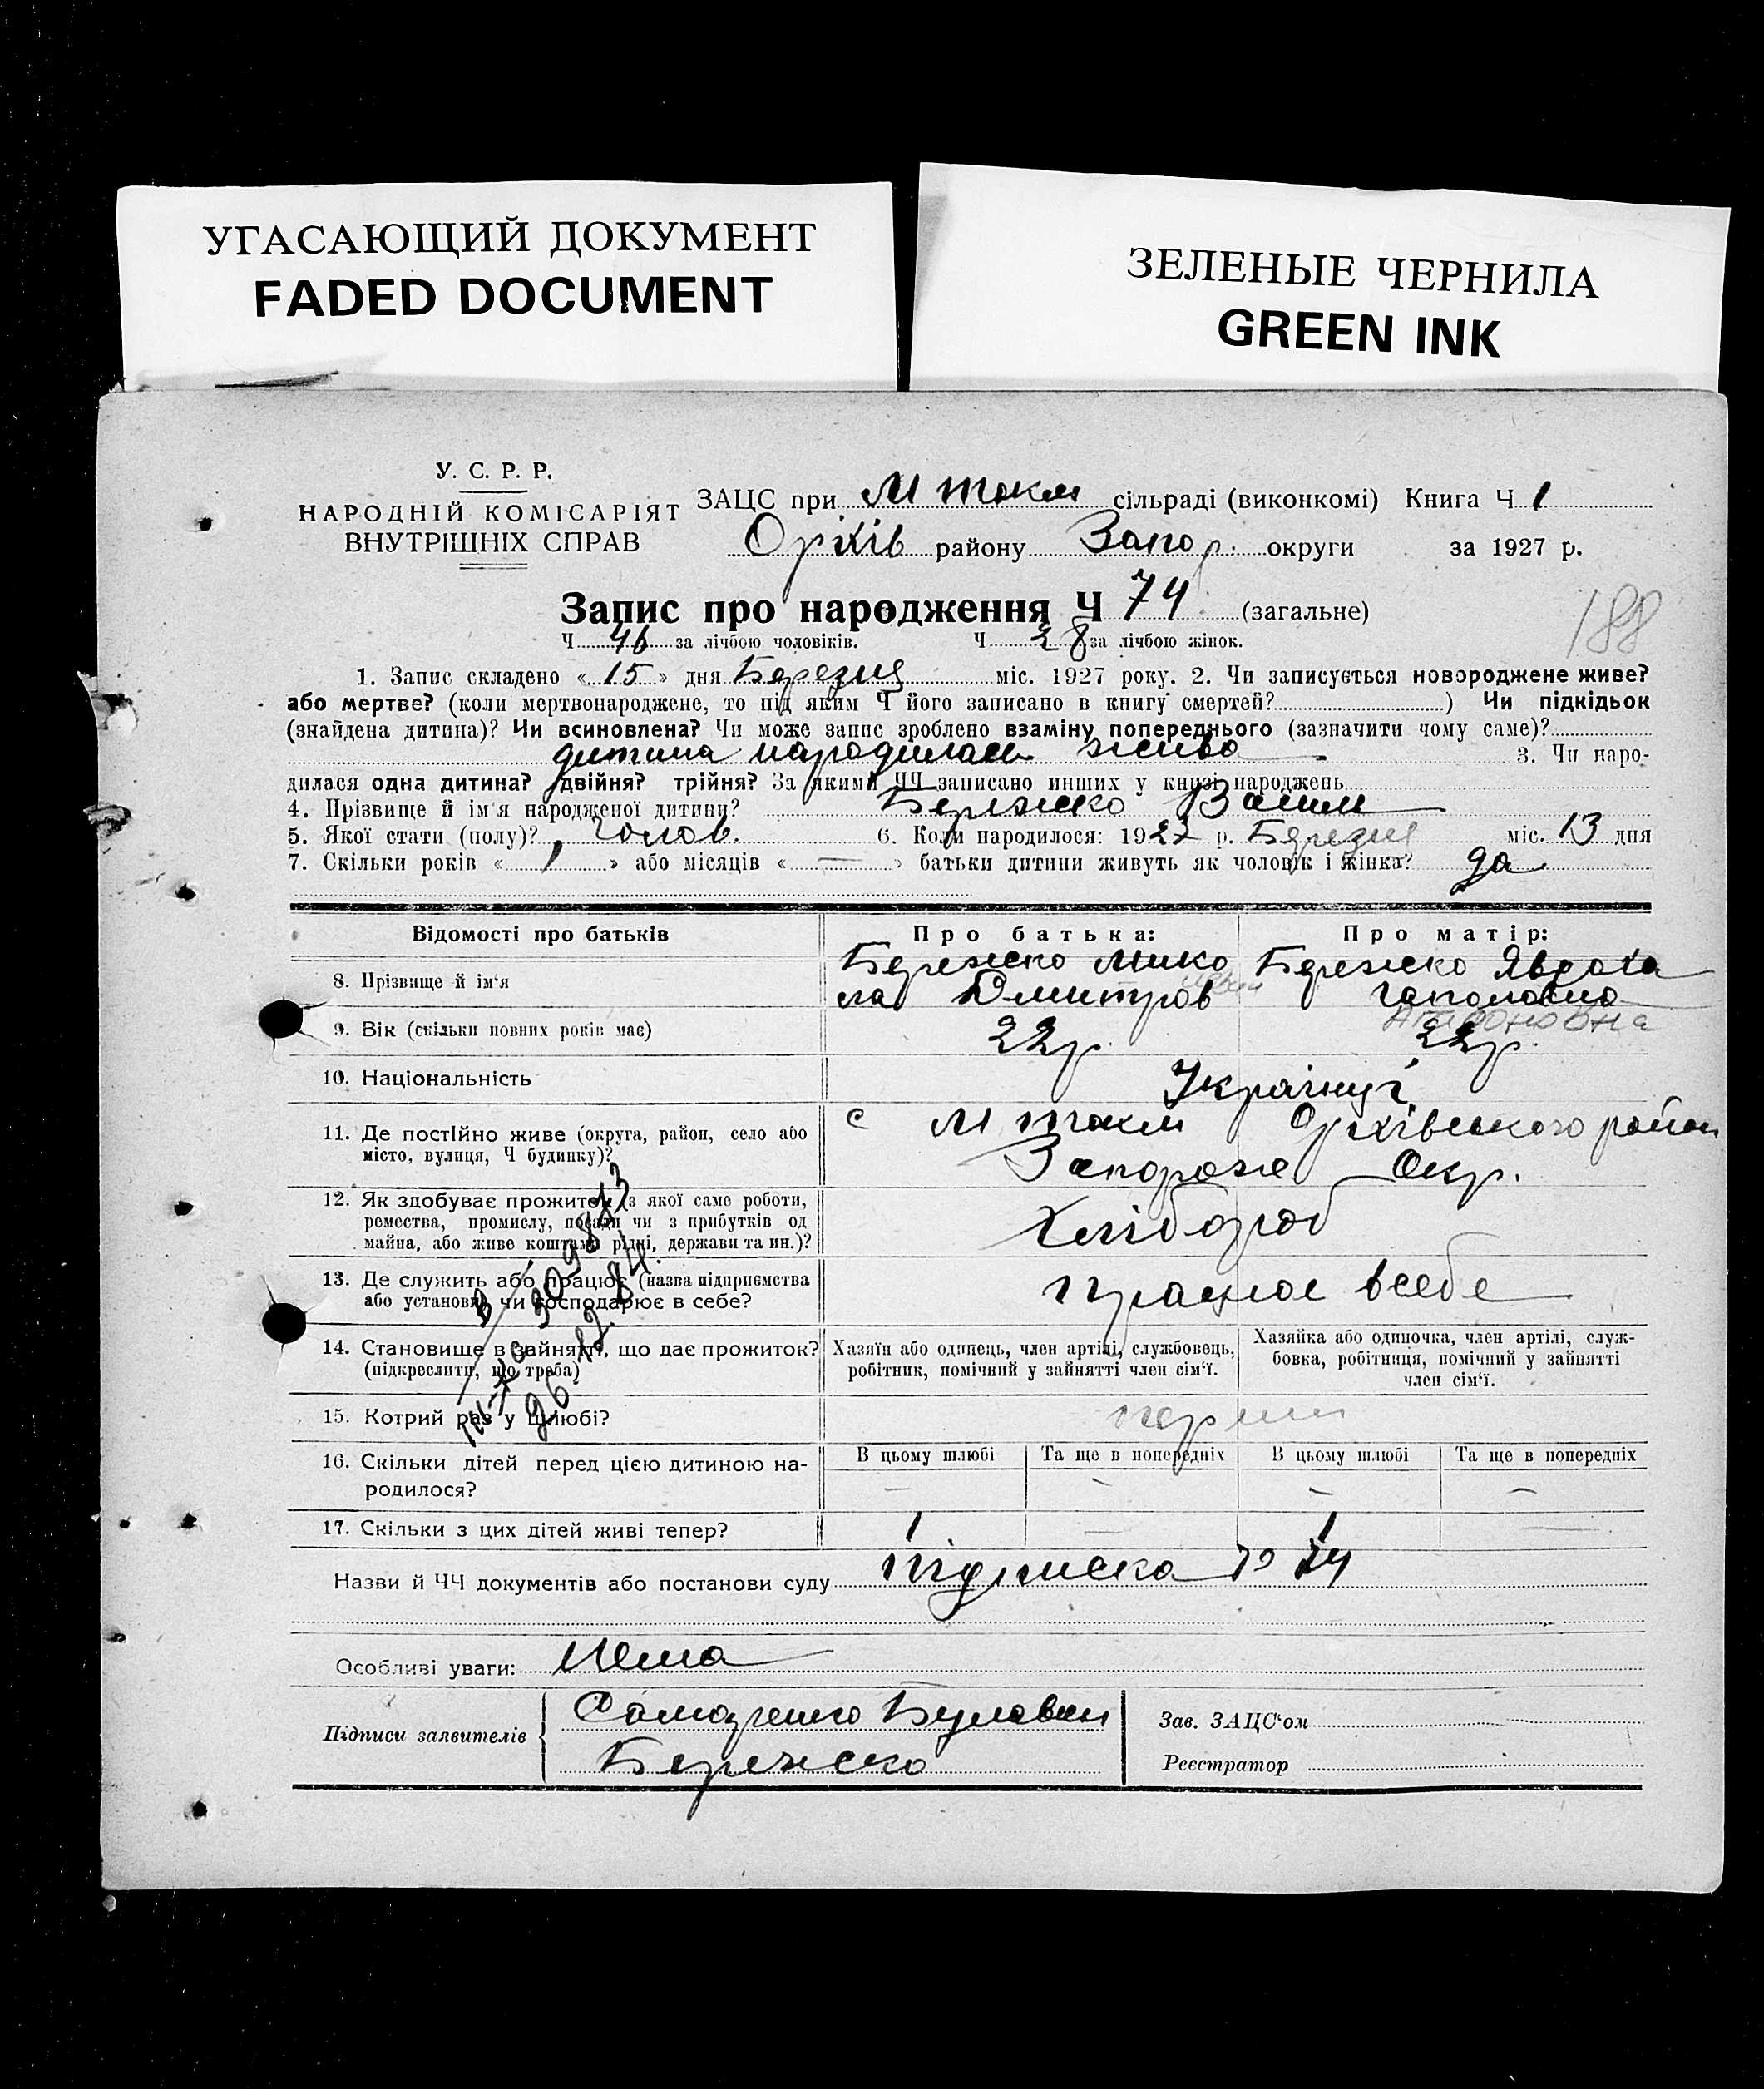 УГАСАЮЩИЙ ДОКУМЕНТ
FADED DOCUMENT
ЗЕЛЕНЫЕ ЧЕРНИЛА
GREEN INK
У. С. Р. Р.
НАРОДНІЙ КОМІСАРІЯТ
ВНУТРІШНІХ СПРАВ
ЗАЦС при М Токм сільраді (виконкомі) Книга Ч 1
Оріхів району Запор. округи за 1927 р.
Запис про народження Ч 74 (загальне)
188
Ч 46 за лічбою чоловіків. Ч 28 за лічбою жінок.
1. Запис складено « 15 » дня Березня міс. 1927 року. 2. Чи записується новороджене живе?
або мертве? (коли мертвонароджене, то під яким Ч його записано в книгу смертей? ) Чи підкідьок
(знайдена дитина)? Чи всиновлена? Чи може запис зроблено взаміну попереднього (зазначити чому саме)?
дитина народилась жива 3. Чи наро-
дилася одна дитина? двійня? трійня? За якими ЧЧ записано инших у книзі народжень
4. Прізвище й ім'я народженої дитини? Бережко
5. Якої стати (полу)? чолов. 6. Коли народилося: 1927 р. Березня міс. 13 дня
7. Скільки років « 1 » або місяців « — » батьки дитини живуть як чоловік і жінка? да
Відомості про батьків Про батька: Про матір:
8. Прізвище й ім'я Бережко Мико Бережко Явдоха
ла Дмитров Гапоновна
Агафоновна
9. Вік (скільки повних років має) 22р. 22р.
10. Національність Українці
11. Де постійно живе (округа, район, село або с М Токм Оріхівського район
місто, вулиця, Ч будинку)? Запорож Окр.
12. Як здобуває прожиток (з якої само роботи,
ремества, промислу, посади чи з прибутків од
майна, або живе коштами рідні, держави та ин.)? Хлібороб
13. Де служить або працює (назва підприємства
або установи) чи господарює в себе? працює в себе
14. Становище в зайнятті, що дає прожиток?
(підкреслити, що треба)
Хазяїн або одинець, член артілі, службовець,
робітник, помічний у зайнятті член сім'ї.
Хазяйка або одиночка, член артілі, служ-
бовка, робітниця, помічний у зайнятті
член сім'ї.
15. Котрий раз у шлюбі? перший
16. Скільки дітей перед цією дитиною на-
родилося?
В цьому шлюбі Та ще в попередніх В цьому шлюбі Та ще в попередніх
— — — —
17. Скільки з цих дітей живі тепер? 1 — 1 —
Назви й ЧЧ документів або постанови суду Підписка № 74
Особливі уваги: Нема
Підписи заявителів
Бережко
Зав. ЗАЦС'ом
Реєстратор